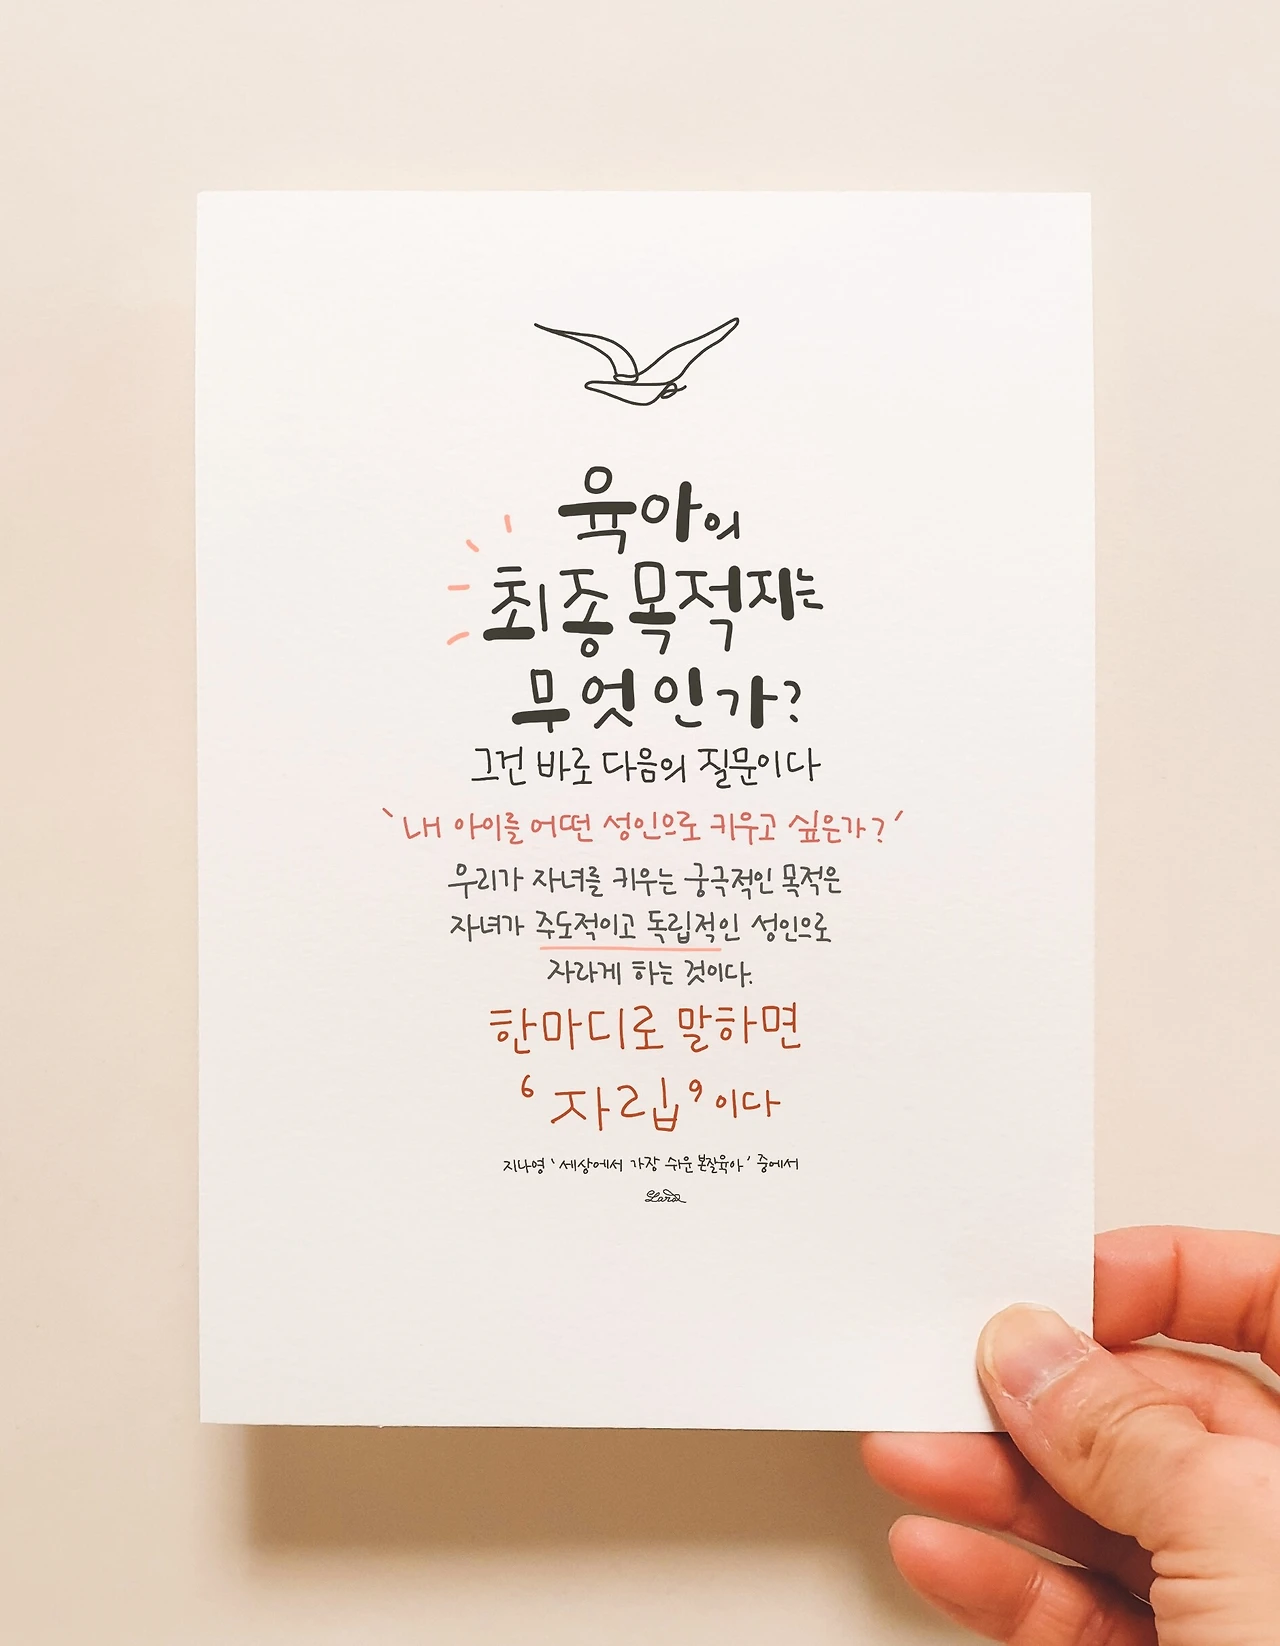 육아의
최종 목적지는
무엇인가?
그건 바로 다음의 질문이다
'내 아이를 어떤 성인으로 키우고 싶은가?'
우리가 자녀를 키우는 궁극적인 목적은
자녀가 주도적이고 독립적인 성인으로
자라게 하는 것이다.
한마디로 말하면
'자립'이다
지나영 '세상에서 가장 쉬운 본질육아' 중에서